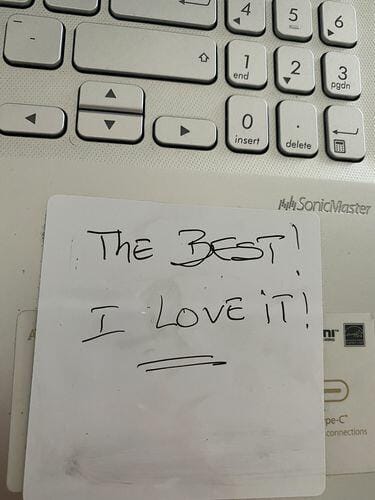 4
5
6
-
1
end
2
3
pgdn
0
insert
.
delete
SonicMaster
THE BEST!
I LOVE iT!
pe-C
connections